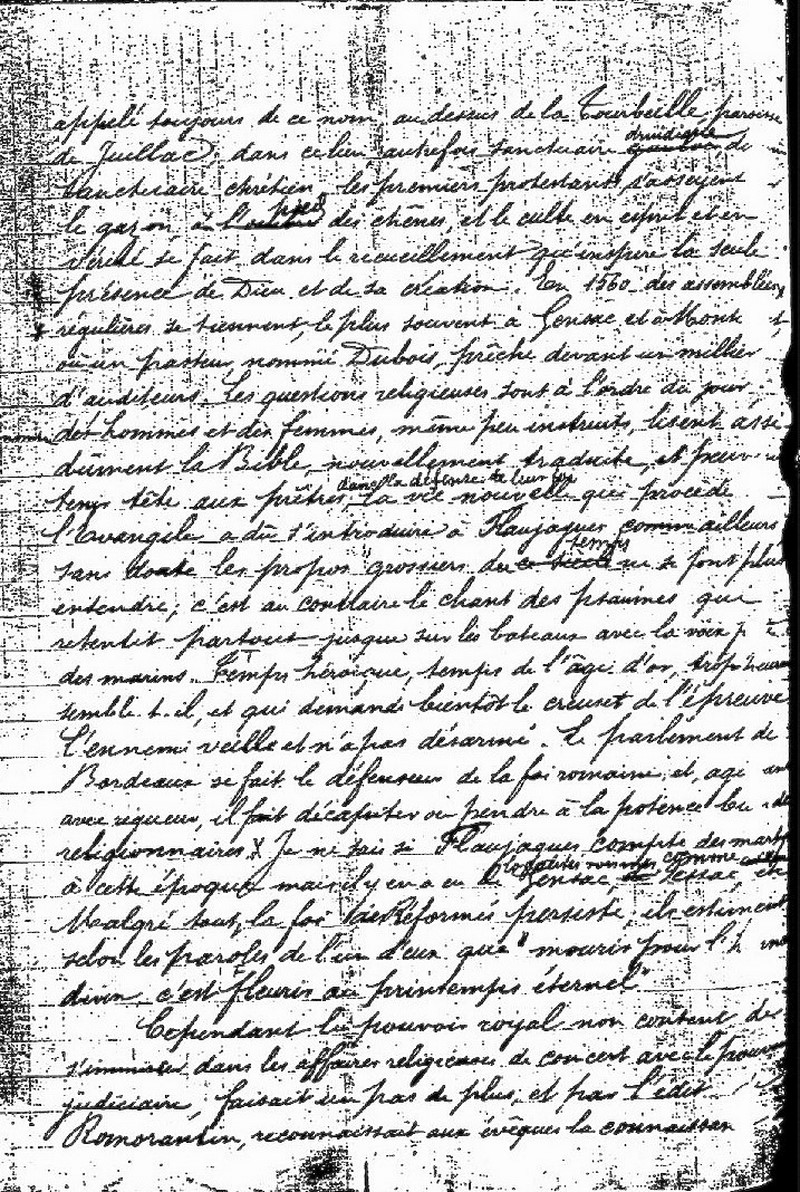 appelé toujours de ce nom, au dessus de la Tourbeille, paroisse
druidique
de Juillac; dans ce lieu, autrefois sanctuaire de
sanctuaire chrétien, les premiers protestants s'assoyent
pied
le gazon à des chênes, et le culte en esprit et en
vérité se fait dans le recueillement qu'inspire la seule
présence de Dieu et de sa création. En 1560 des assemblées
régulières se tiennent, le plus souvent à Gensac et à Mont
où un pasteur, nommé Dubois, prêche devant un millier
d'auditeurs. Les questions religieuses sont à l'ordre du jour,
des hommes et des femmes, même peu instruits, lisent assi
dûment la Bible, nouvellement traduite, et peuv
dans la défense de leur foi
tenir tête aux prêtres, La vie nouvelle que procède
l'Evangile a dû s'introduire à Flaujagues comme ailleurs
temps
sans doute les propos grossiers du ce siècle ne se font plus
entendre; c'est au contraire le chant des psaumes que
retentit partout jusque sur les bateaux avec la voix
des marins. Temps héroïque, temps de l'âge d'or, trop heureux
semble-t-il, et qui demande bientôt le creuset de l'épreuve
L'ennemi veille et n'a pas désarmé. Le parlement de
Bordeaux se fait le défenseur de la foi romaine, et, agi
avec rigueur, il fait décapiter ou pendre à la potence
religionnaires. Je ne sais si Flaujagues compte des marty
à cette époque mais il y en a eu de Gensac, Pessac
Malgré tout, la foi des Réformés persiste, ils estiment
selon les paroles de l'un d'eux que "mourir pour l'
divin c'est fleurir au printemps éternel"
Cependant le pouvoir royal non content de
s'immiscer dans les affaires religieuses de concert avec le pouvoir
judiciaire, faisait un pas de plus, et par l'édit
Romorantin, reconnaissait aux évêques la connaissan